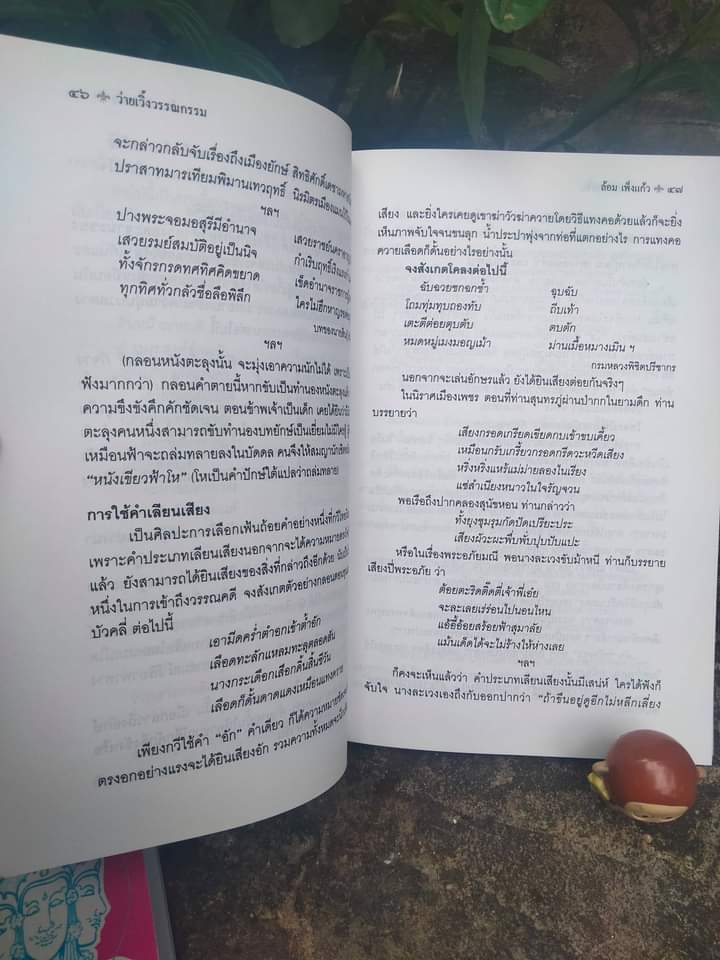 ๔๖ ว่ายเวิ้งวรรณกรรม
จะกล่าวกลับจับเรื่องถึงเมืองยักษ์ สิทธิศักดิ์เดชา
ปราสาทมารเทียมพิมานเทวฤทธิ์ นิรมิตรเมือง
ฯลฯ
ปางพระจอมอสุรีมีอำนาจ เสวยราชย์
เสวยรมย์สมบัติอยู่เป็นนิจ กำเริบฤทธิ์
ทั้งจักรกรดทศทิศคิดขยาด เข็ดอำนาจ
ทุกทิศทั่วกลัวชื่อลือพิลึก ใครไม่ฮึก
บทของนาย
ฯลฯ
(กลอนหนังตะลุงนั้น จะมุ่งเอาความนักไม่ได้
ฟังมากกว่า) กลอนคำตายนี้หากขับเป็นทำนองหนังตะลุง
ความขึงขังคึกคักชัดเจน ตอนข้าพเจ้าเป็นเด็ก เคยได้ยิน
ตะลุงคนหนึ่งสามารถขับทำนองบทยักษ์เป็นเยี่ยมไม่มีใคร
เหมือนฟ้าจะถล่มทลายลงในบัดดล คนจึงให้สมญานัก
“หนังเขียวฟ้าโห” (โหเป็นคำปักษ์ใต้แปลว่าถล่มทลาย)
การใช้คำเลียนเสียง
เป็นศิลปะการเลือกเฟ้นถ้อยคำอย่างหนึ่งที่กวี
เพราะคำประเภทเลียนเสียงนอกจากจะได้ความหมาย
แล้ว ยังสามารถได้ยินเสียงของสิ่งที่กล่าวถึงอีกด้วย
หนึ่งในการเข้าถึงวรรณคดี จงสังเกตตัวอย่างกลอน
บัวคลี่ ต่อไปนี้
เอามีดคร่ำตำอกเข้าต้ำอัก
เลือดทะลักแหลมทะลุตลอดสัน
นางกระเดือกเสือกดิ้นสิ้นชีวัน
เลือดก็ดั้นดาดแดงเหมือนแทงควาย
เพียงกวีใช้คำ “อัก” คำเดียว ก็ได้ความหมาย
ตรงอกอย่างแรงจะได้ยินเสียงอัก รวมความทั้งหมด
ล้อม เพ็งแก้ว ๔๗
เสียง และยิ่งใครเคยดูเขาฆ่าวัวฆ่าควายโดยวิธีแทงคอด้วยแล้วก็จะยิ่ง
เห็นภาพจับใจจนขนลุก น้ำประปาพุ่งจากท่อที่แตกอย่างไร การแทงคอ
ควายเลือดก็ดั้นอย่างไรอย่างนั้น
จงสังเกตโคลงต่อไปนี้
ฉับฉวยชกฉกช้ำ ฉุบฉับ
โถมทุ่มทุบถองทับ ถีบเท้า
เตะตีต่อยตุบตับ ตบตัก
หมดหมู่เมงมอญเม้า ม่านเมื้อหมางเมิน ฯ
กรมหลวงพิชิตปรีชากร
นอกจากจะเล่นอักษรแล้ว ยังได้ยินเสียงต่อยกันจริงๆ
ในนิราศเมืองเพชร ตอนที่ท่านสุนทรภู่ผ่านป่ากกในยามดึก ท่าน
บรรยายว่า
เสียงกรอดเกรียดเขียดกบเข้าขบเคี้ยว
เหมือนกรับเกรี้ยวกรอดกรีดวะหวีดเสียง
หริ่งหริ่งแหร้แม่ม่ายลองในเรียง
แซ่สำเนียงหนาวในใจรัญจวน
พอเรือถึงปากคลองสุนัขหอน ท่านกล่าวว่า
ทั้งยุงชุมรุมกัดปัดเปรียะประ
เสียงผัวะผะพึ่บพั่บปุบปับแปะ
หรือในเรื่องพระอภัยมณี พอนางละเวงขับม้าหนี ท่านก็บรรยาย
เสียงปี่พระอภัย ว่า
ต้อยตะริดติ๊ดตี่เจ้าพี่เอ๋ย
จะละเลยเร่ร่อนไปนอนไหน
แอ้อี้อ้อยสร้อยฟ้าสุมาลัย
แม้นเด็ดได้จะไม่ร้างให้ห่างเลย
ฯลฯ
ก็คงจะเห็นแล้วว่า คำประเภทเลียนเสียงนั้นมีเสน่ห์ ใครได้ฟังก็
จับใจ นางละเวงเองถึงกับออกปากว่า “ถ้าขืนอยู่ดูอีกไม่หลีกเลี่ยง